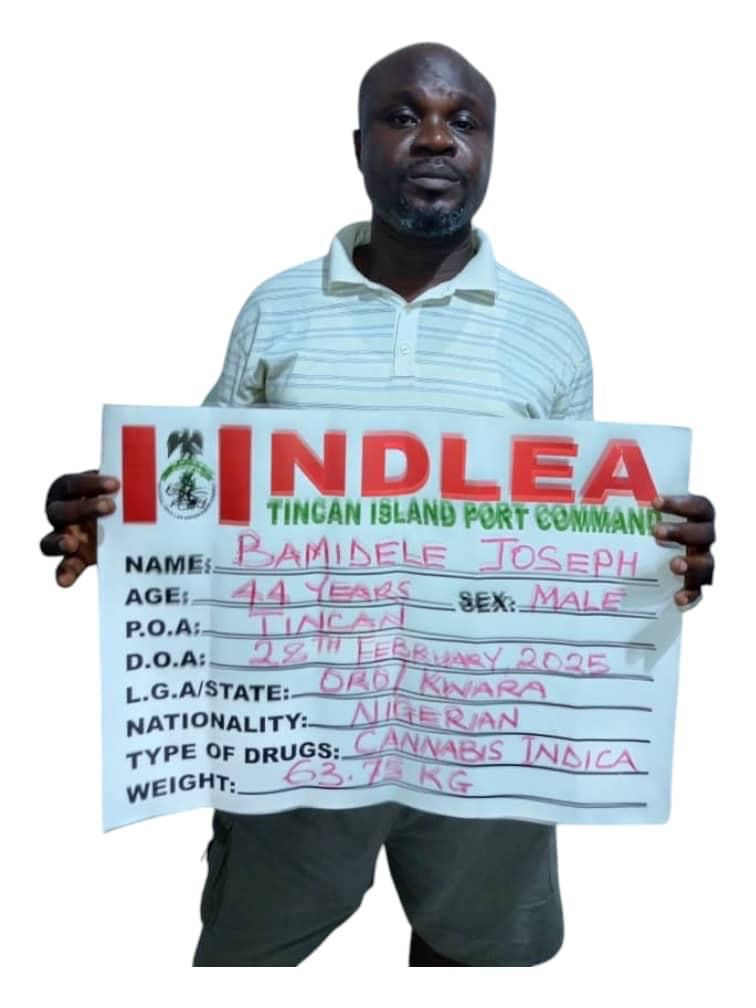 NDLEA
TINCAN ISLAND PORT COMMAND
NAME: BAMIDELE JOSEPH
AGE: 44 YEARS SEX: MALE
P.O.A: TINCAN
D.O.A: 28TH FEBRUARY 2025
L.G.A/STATE: ORO/KWARA
NATIONALITY: NIGERIAN
TYPE OF DRUGS: CANNABIS INDICA
WEIGHT: 63.75 KG